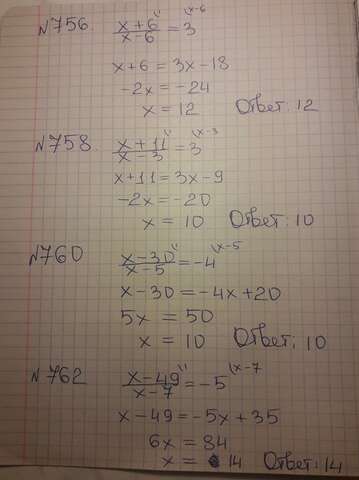 №756. x+6\¹/x-6 = 3\x-6
x+6 = 3x-18
-2x = -24
x = 12 Ответ: 12
№758. x+11\¹/x-3 = 3\x-3
x+11 = 3x-9
-2x = -20
x = 10 Ответ: 10
№760 x-30\¹/x-5 = -4\x-5
x-30 = -4x+20
5x = 50
x = 10 Ответ: 10
№762 x-49\¹/x-7 = -5\x-7
x-49 = -5x+35
6x = 84
x = 14 Ответ: 14